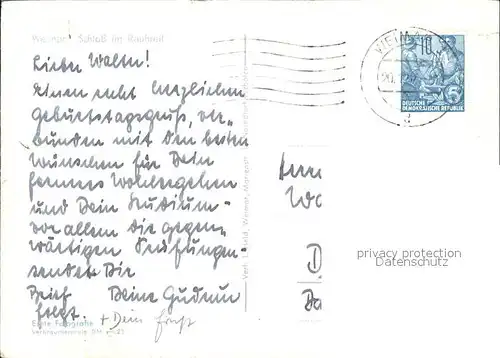 Weimar Schloß im Baumut
Lieber Walter!
Einen recht herzlichen
Geburtstagsgruß, ver-
bunden mit den besten
Wünschen für Dein
ferneres Wohlergehen
und Dein Studium -
vor allem die gegen-
wärtigen Prüfungen -
sendet Dir
Brief Deine Gudrun
folgt. + Dein
Echte Fotografie
WEIMAR
20.
10
DEUTSCHE
DEMOKRATISCHE REPUBLIK
Herrn
privacy protection
Datenschutz